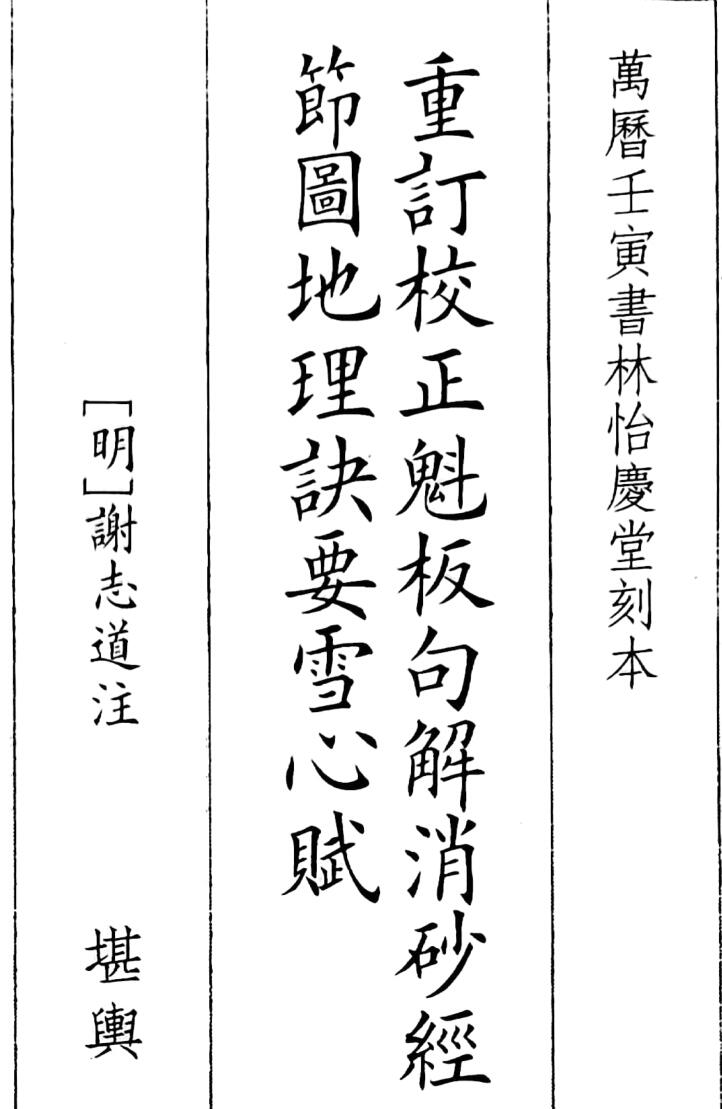 萬曆壬寅書林怡慶堂刻本
重訂校正魁板句解消砂經
節圖地理訣要雪心賦
［明］謝志道注
堪輿